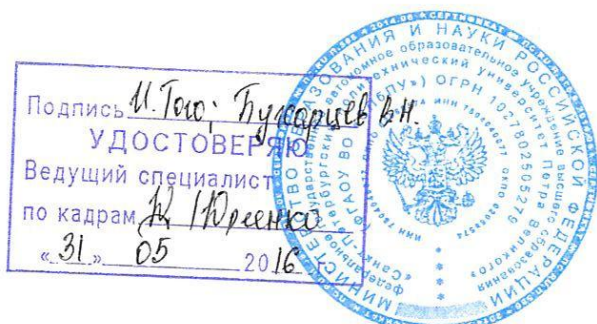 Подпись И. Того; Бухарцев В.Н.
УДОСТОВЕРЯЮ
Ведущий специалист
по кадрам
«31» 05 2016
МИНИСТЕРСТВО ОБРАЗОВАНИЯ И НАУКИ РОССИЙСКОЙ ФЕДЕРАЦИИ
федеральное государственное автономное образовательное учреждение высшего образования
«Санкт-Петербургский политехнический университет Петра Великого»
(ФГАОУ ВО «СПбПУ») ОГРН 1027802505279